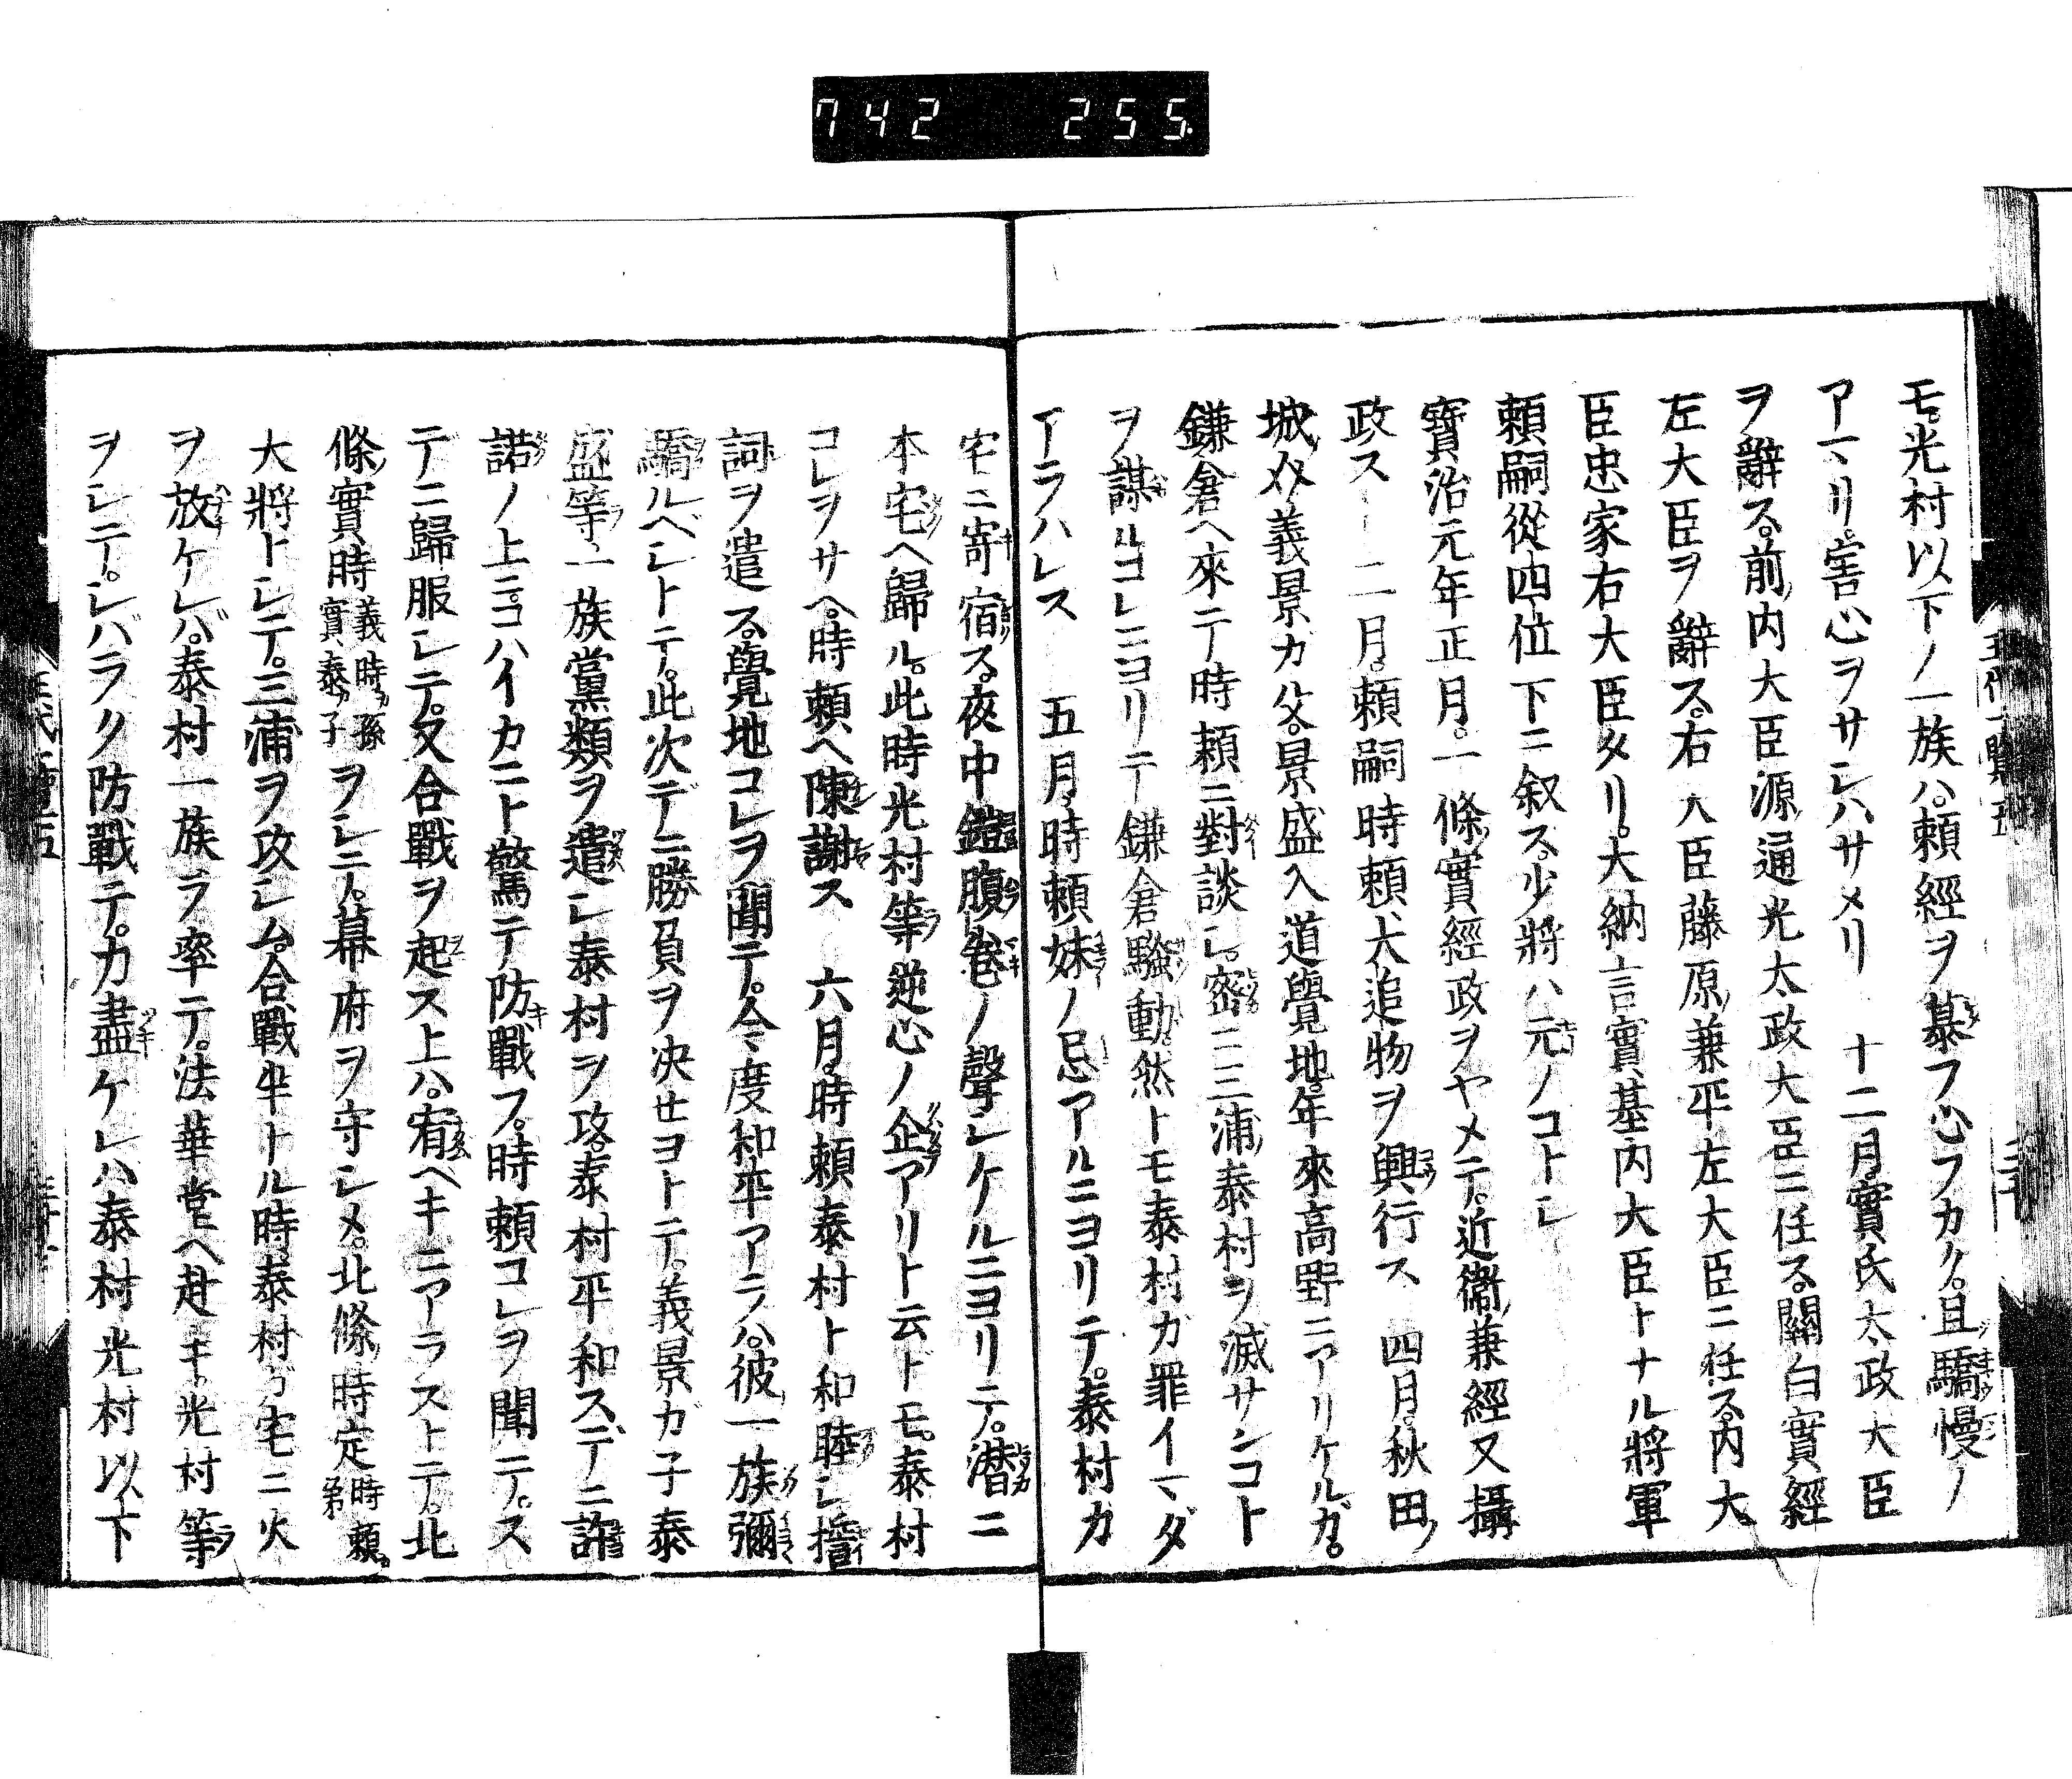 742 255.
モ。光村以下ノ一族ハ。頼經ヲ慕フ心フカク。且驕慢ノ
アマリ。害心ヲサシハサメリ 十二月。實氏太政大臣
ヲ辭ス。前内大臣源通光太政大臣ニ任ス。關白實經
左大臣ヲ辭ス。右大臣藤原兼平左大臣ニ任ス。内大
臣忠家右大臣タリ。大納言實基内大臣トナル將軍
頼嗣從四位下ニ叙ス。少將ハ元ノコトシ
寶治元年正月。一條實經政ヲヤメテ。近衞兼經又攝
政ス 二月。頼嗣時頼犬追物ヲ興行ス 四月。秋田
城介義景カ父。景盛入道覺地。年來高野ニアリケルガ。
鎌倉ヘ來テ時頼ニ對談シ。密ニ三浦泰村ヲ滅サンコト
ヲ謀ルコレニヨリテ鎌倉騷動。然トモ泰村カ罪イマダ
アラハレス 五月。時頼妹ノ忌アルニヨリテ。泰村カ
宅ニ寄宿ス。夜中鎧腹卷ノ聲シケルニヨリテ。潜ニ
本宅ヘ歸ル。此時光村等逆心ノ企アリト云ドモ。泰村
コレヲサヘ。時頼ヘ陳謝ス 六月。時頼泰村ト和睦シ誓
詞ヲ遣ス。覺地コレヲ聞テ。今度和平アラハ。彼一族彌
驕ルベシトテ。此次デニ勝負ヲ决セヨトテ。義景ガ子泰
盛等一族黨類ヲ遣シ泰村ヲ攻。泰村平和スデニ許
諾ノ上ニ。コハイカニト驚テ防戰フ。時頼コレヲ聞テ。ス
テニ歸服シテ。又合戰ヲ起ス上ハ。宥ヘキニアラストテ。北
條實時義時カ孫實泰カ子ヲシテ。幕府ヲ守シメ。北條時定時頼弟
大將トシテ。三浦ヲ攻シム。合戰半トル時。泰村ガ宅ニ火
ヲ放ケレバ。泰村一族ヲ率テ。法華堂ヘ赴キ。光村等
ヲシテ。シバラク防戰テ。力盡ケレハ泰村光村以下